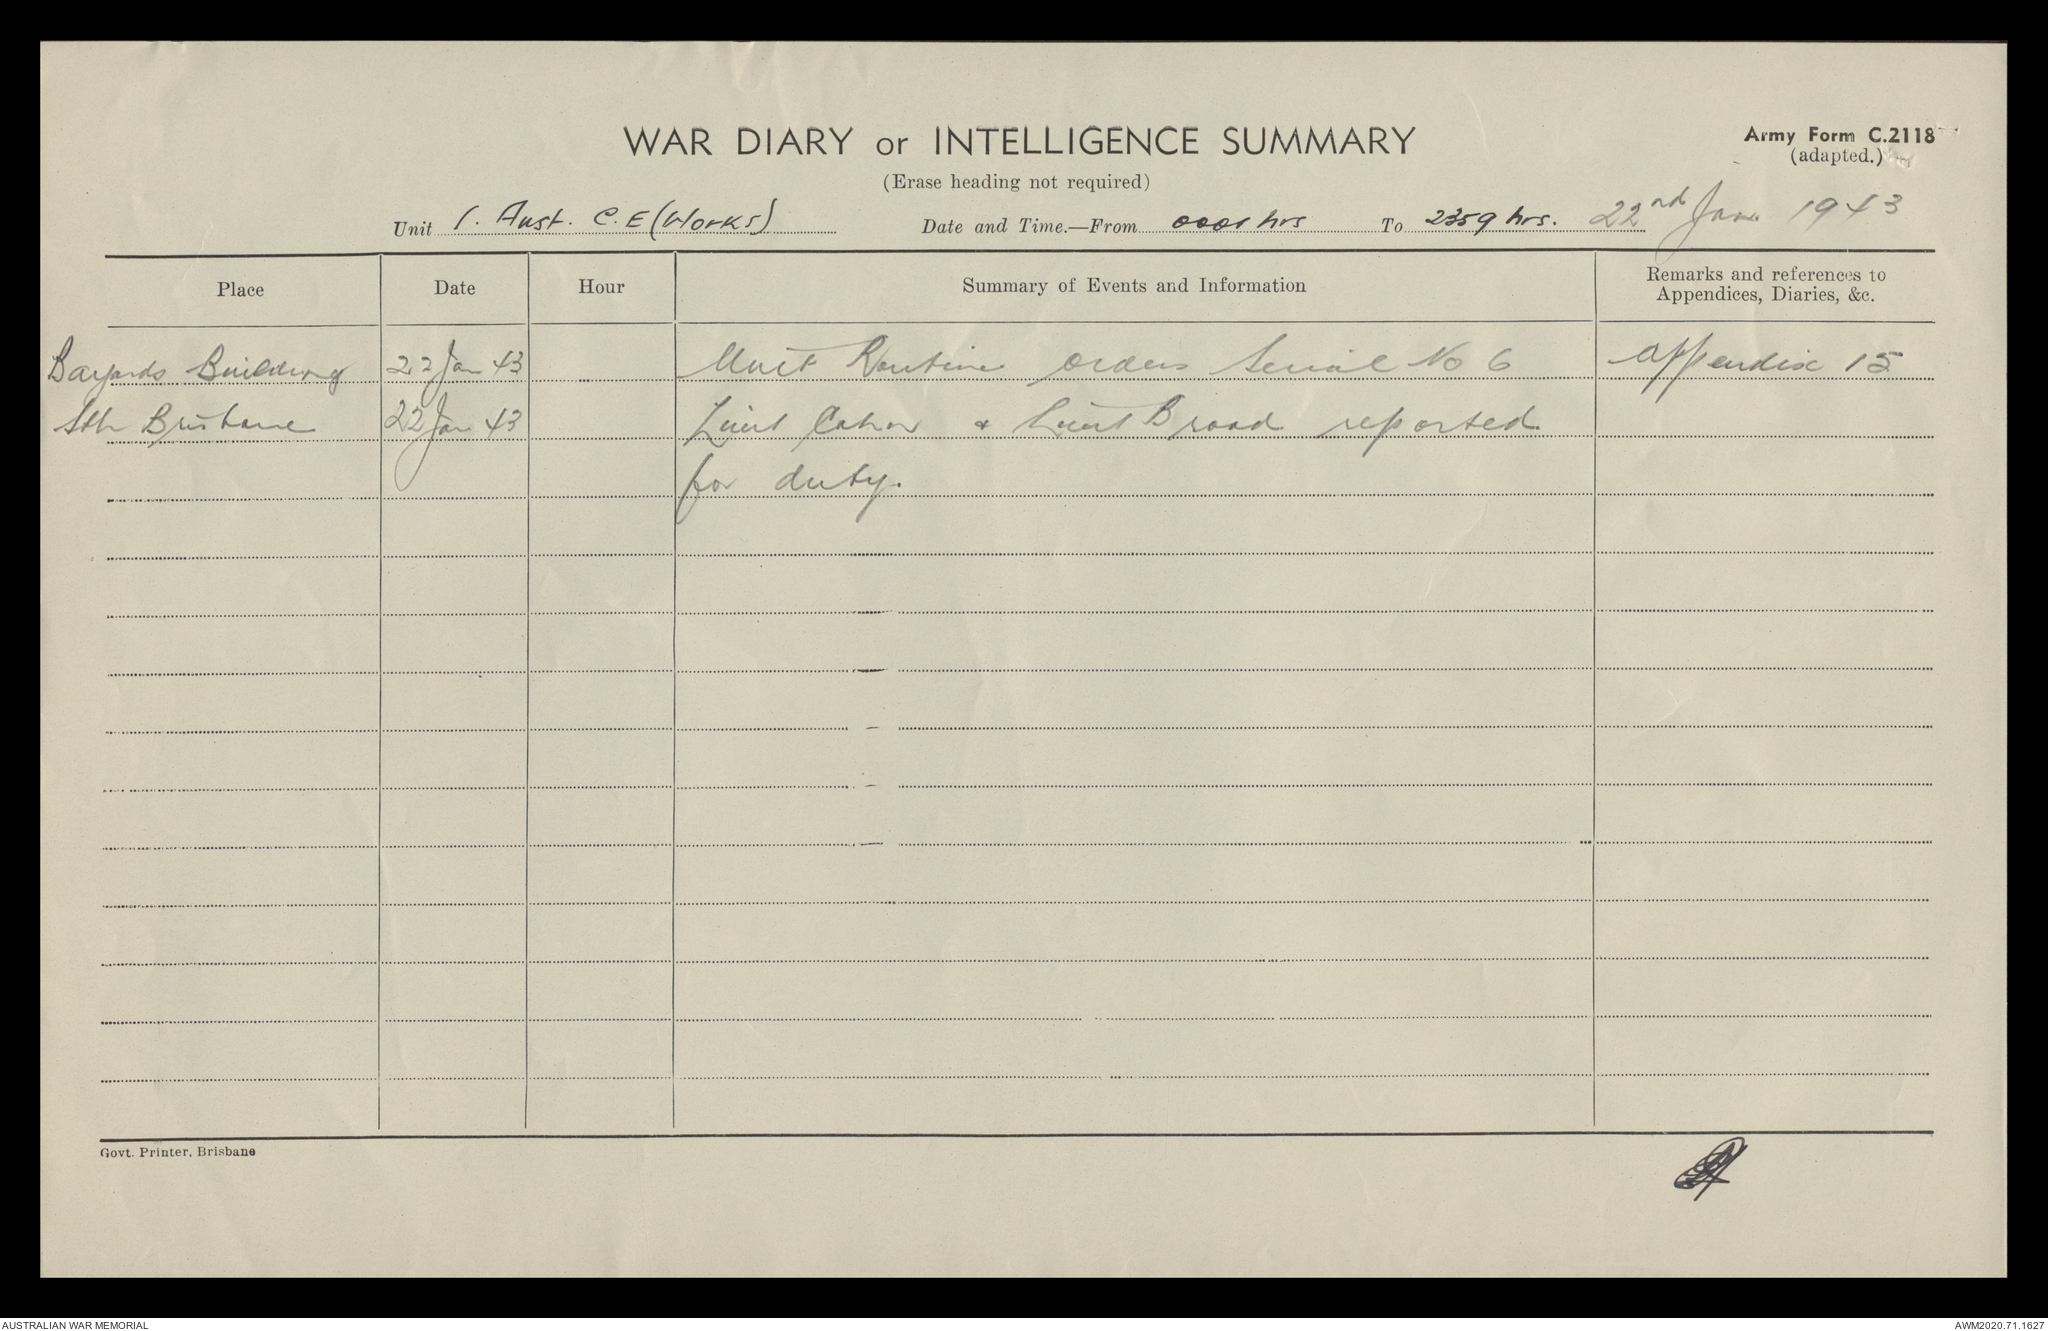 WAR DIARY or INTELLIGENCE SUMMARY
Army Form C.2118
(adapted.)
(Erase heading not required)
Unit 1. Aust. C.E (Works) Date and Time.—From 0001 hrs To 2359 hrs. 22nd Jan 1943
Place Date Hour Summary of Events and Information Remarks and references to Appendices, Diaries, &c.
Bayards Building 22 Jan 43 Unit Routine Orders Serial No 6 Appendix 15
Sth Brisbane 22 Jan 43 Lieut & Lieut Broad reported
for duty.
Govt. Printer, Brisbane
AUSTRALIAN WAR MEMORIAL
AWM2020.71.1627